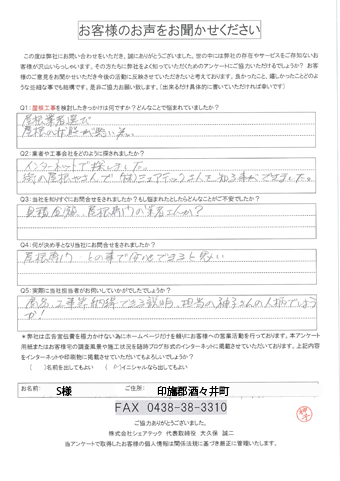 お客様のお声をお聞かせください
この度は弊社にお問い合わせをいただき、誠にありがとうございました。世の中には弊社の存在やサービスをご存知ないお
客様が沢山いらっしゃいます。その方たちに弊社をよく知っていただくためのアンケートにご協力いただけるでしょうか？お客
様のご意見をお聞かせいただき今後の活動に反映させていただきたいと考えております。良かったこと、嬉しかったことどのよ
うな些細な事でも結構です、是非ご協力お願い致します。(出来るだけ具体的に書いていただければ幸いです)
Q1:屋根工事を検討したきっかけは何ですか？どんなことで悩まれていましたか？
屋根業者選び
屋根の状態が悪い為。
Q2:業者や工事会社をどのように探されましたか？
インターネットで探しました。
街の屋根やさんで(株)シェアテックさんを知る事ができました。
Q3:当社を知りすぐにお問合せをされましたか？もし悩まれたとしたらどんなことがご不安でしたか？
見積金額、屋根専門の業者さんか？
Q4:何が決め手となり当社にお問合せをされましたか？
屋根専門との事で任せできると思い
Q5:実際に当社担当者がお伺いしいかがでしたでしょうか？
商品、工事等納得できる説明、担当の神子さんの人柄でしょう
か！
＊弊社は広告宣伝費を極力かけない為にホームページだけを頼りにお客様への営業活動を行っております。本アンケート
用紙またはお客様宅の調査風景や施工状況を随時ブログ形式のインターネットに掲載させていただいております。上記内容
をインターネットや印刷物に掲載させていただいてもよろしいでしょうか？
(　)名前を出してもよい　(○)イニシャルなら出してもよい
お名前：　S様　ご住所：　印旛郡酒々井町
FAX 0438-38-3310
ご協力ありがとうございました。
株式会社シェアテック 代表取締役 大久保 誠二
当アンケートで取得したお客様の個人情報は関係法規に基づき厳正に管理いたします。